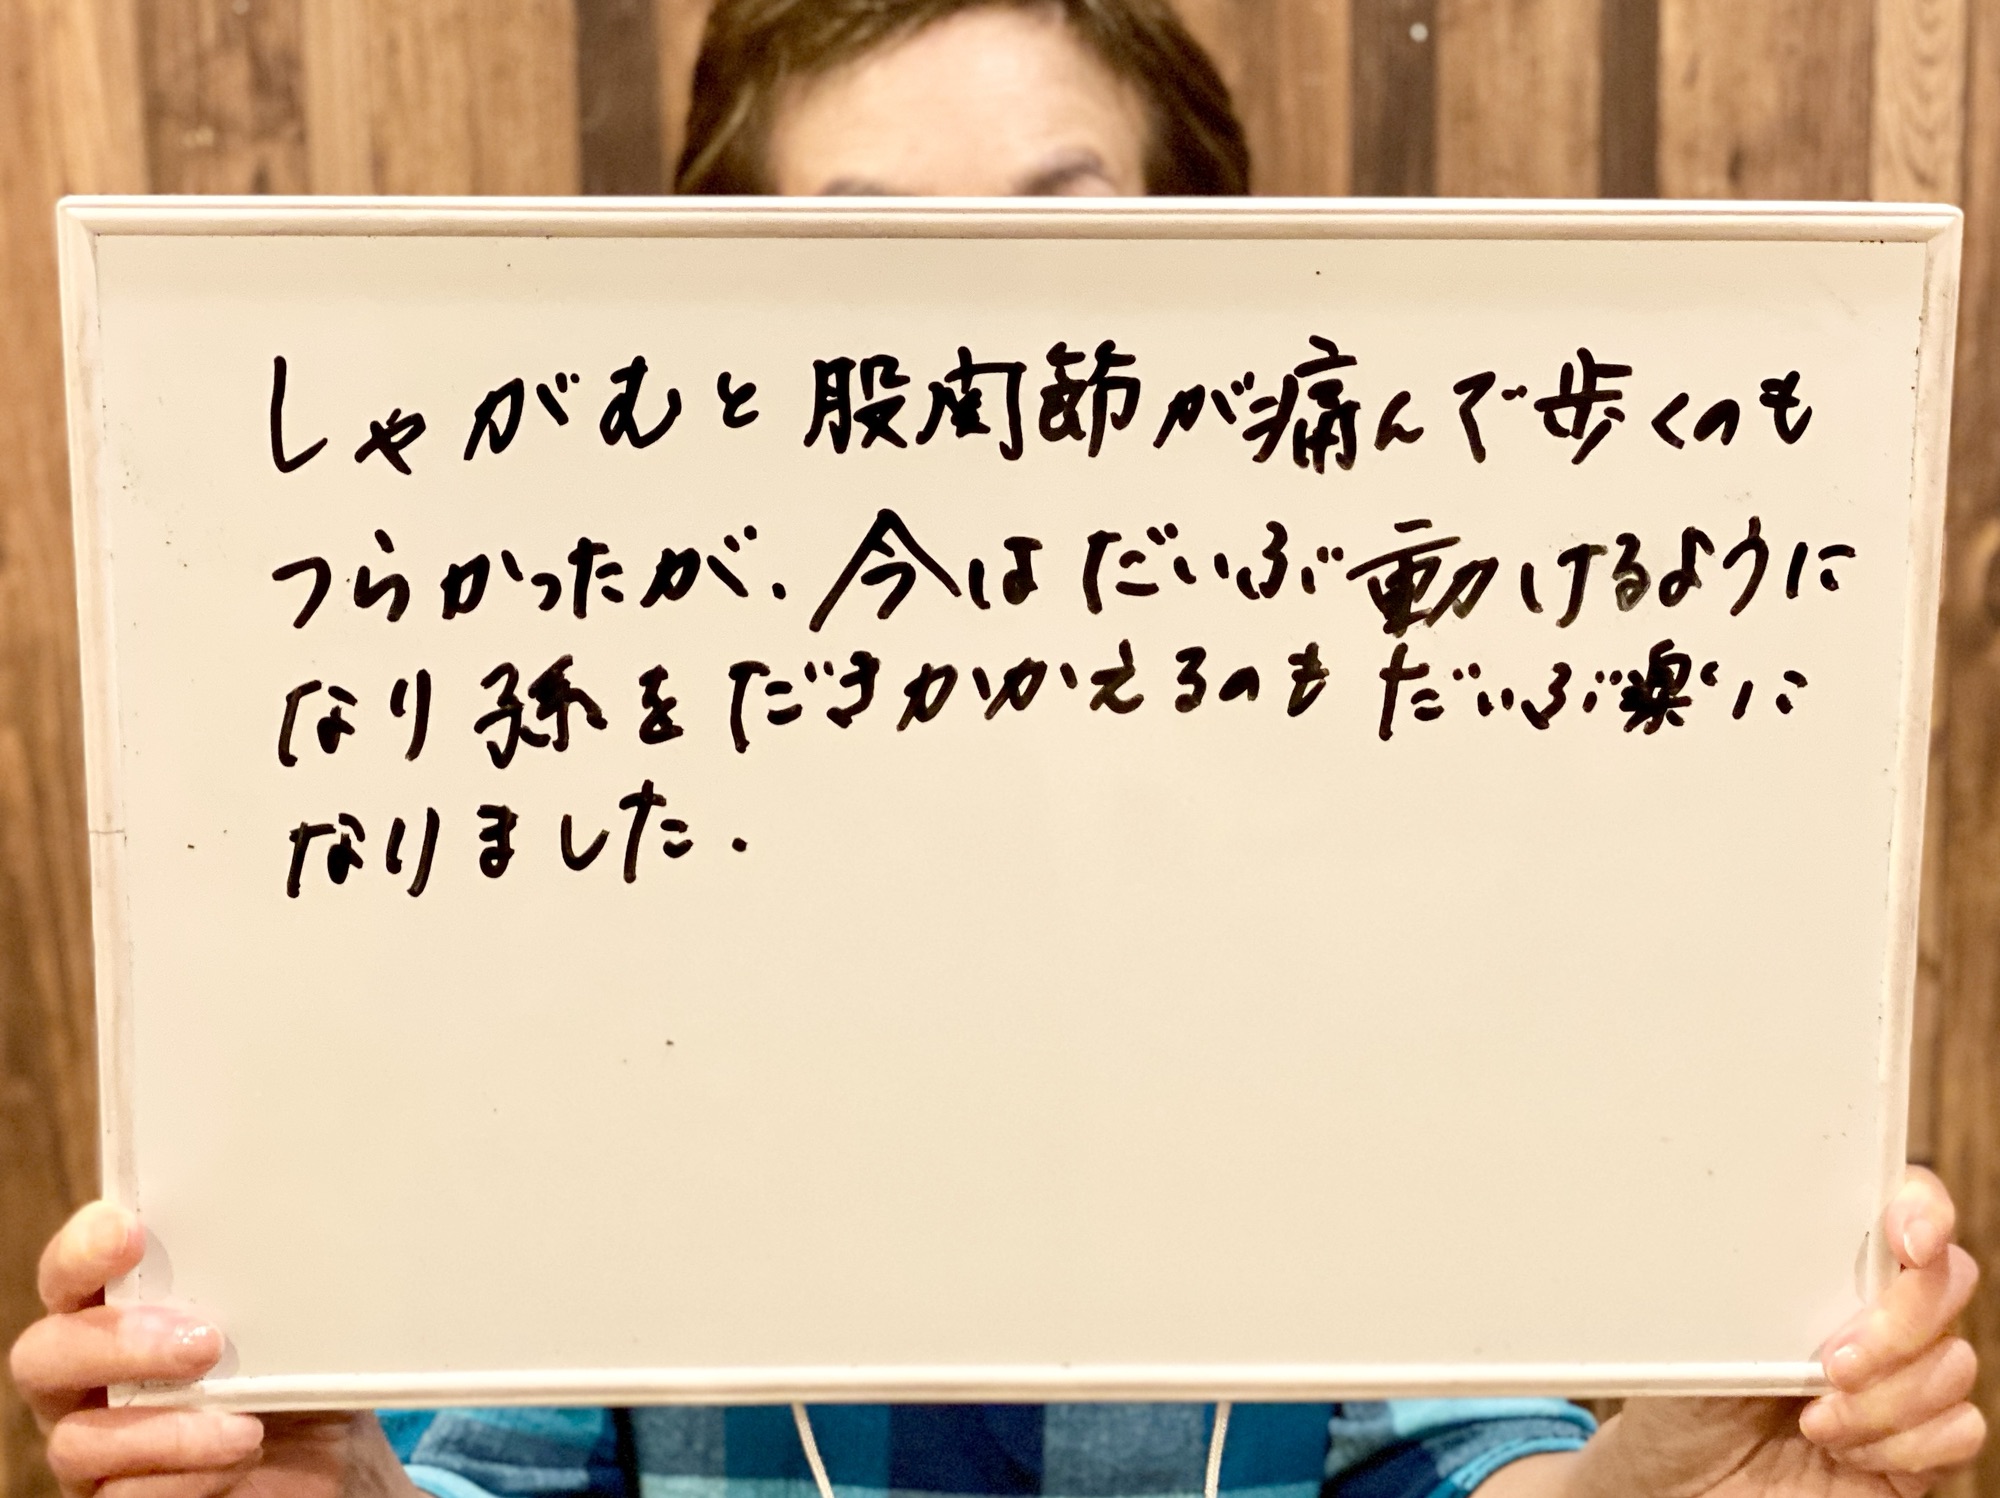 しゃがむと股関節が痛んで歩くのも
つらかったが、今はだいぶ動けるように
なり孫をださかかえるのもだいぶ楽に
なりました.